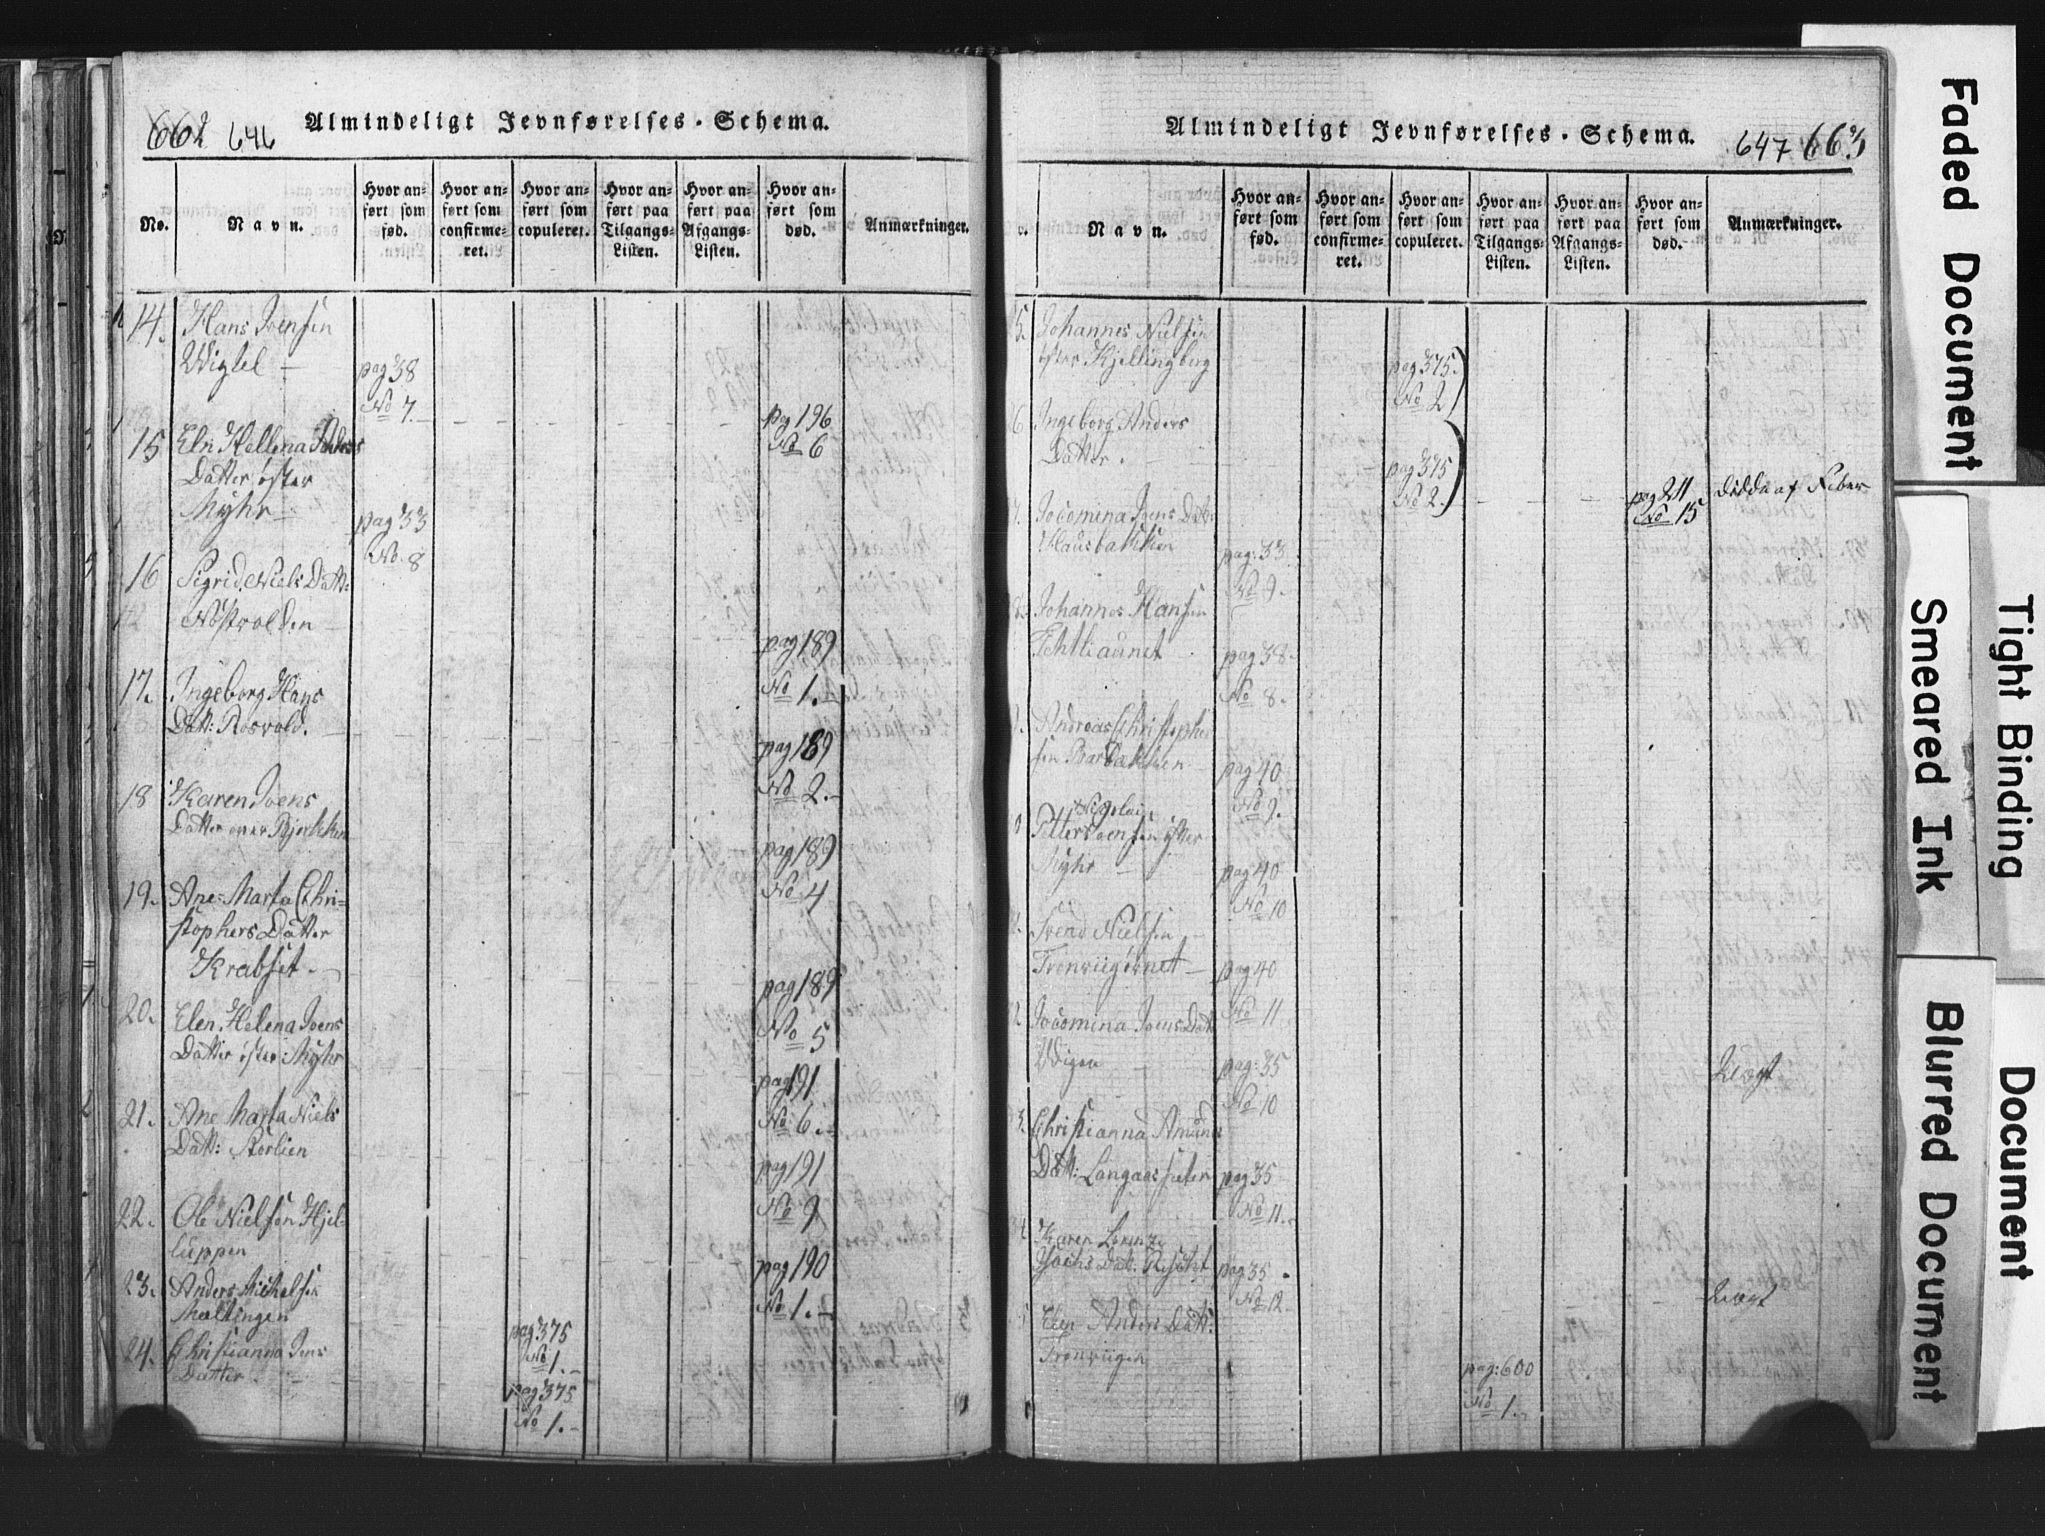 662 646 Almindeligt Jevnførelses-Schema.
No.
Navn.
Hvor an-
ført som
fød.
Hvor an-
ført som
confirme-
ret.
Hvor an-
ført som
copuleret.
Hvor an-
ført paa
Tilgangs-
Listen.
Hvor an-
ført paa
Afgangs-
Listen.
Hvor an-
ført som
død.
Anmærkninger.
14. Hans Ivensen
pag 38
No 7.
15 Eln Hellena Anders
Datter øster
Myhr
pag 33
No. 8
pag 196
No 6
16 Sigrid Niels Datt:
pag 189
No 1.
17. Ingeborg Hans
Datt: Rosvold.
pag 189
No 2.
18 Karen Joens
Datter
pag 189
No 4
19. Ane Marta Chri-
stophers Datter
Krabset
pag 189
No 5
20. Elen Helena Joens
Datter øster Myhr
pag 191
No 6.
21. Ane Marta Niels
Datt: Storlien
pag 191
No 9
22. Ole Nielsen Hjel-
luppen
pag 190
No 1.
23. Anders Michelsen
Mæltingen
pag 375
No 1.
24. Christianna Jens
Datter
pag 375
No 1.
Almindeligt Jevnførelses-Schema. 647 663
Navn.
Hvor an-
ført som
fød.
Hvor an-
ført som
confirme-
ret.
Hvor an-
ført som
copuleret.
Hvor an-
ført paa
Tilgangs-
Listen.
Hvor an-
ført paa
Afgangs-
Listen.
Hvor an-
ført som
død.
Anmærkninger.
5. Johannes Nielsen
øster Kjellingberg
pag 375.
No 2
6. Ingeborg Anders
Datter.
pag 375
No 2.
pag 211
No 15
Jocomina Joens Datt:
pag: 33
No 9.
Johannes Hansen
pag 38
No 8.
Andreas Christopher
sen Barbakken
pag 40
No 9.
Nigolai
Petter Joensen øster
Myhr
pag 40
No 10
Trond Nielsen
pag 40
No 11
Jocomina Joens Datt
pag: 35
No 10
3. Christianna Amund
Datt: Langaassæter
pag 35
No 11.
Karen Lorentze
pag 35
No 12
Elen Anders Datt:
Tronviigen
pag: 600
No 1.
Faded Document
Smeared Ink
Tight Binding
Blurred Document
Document